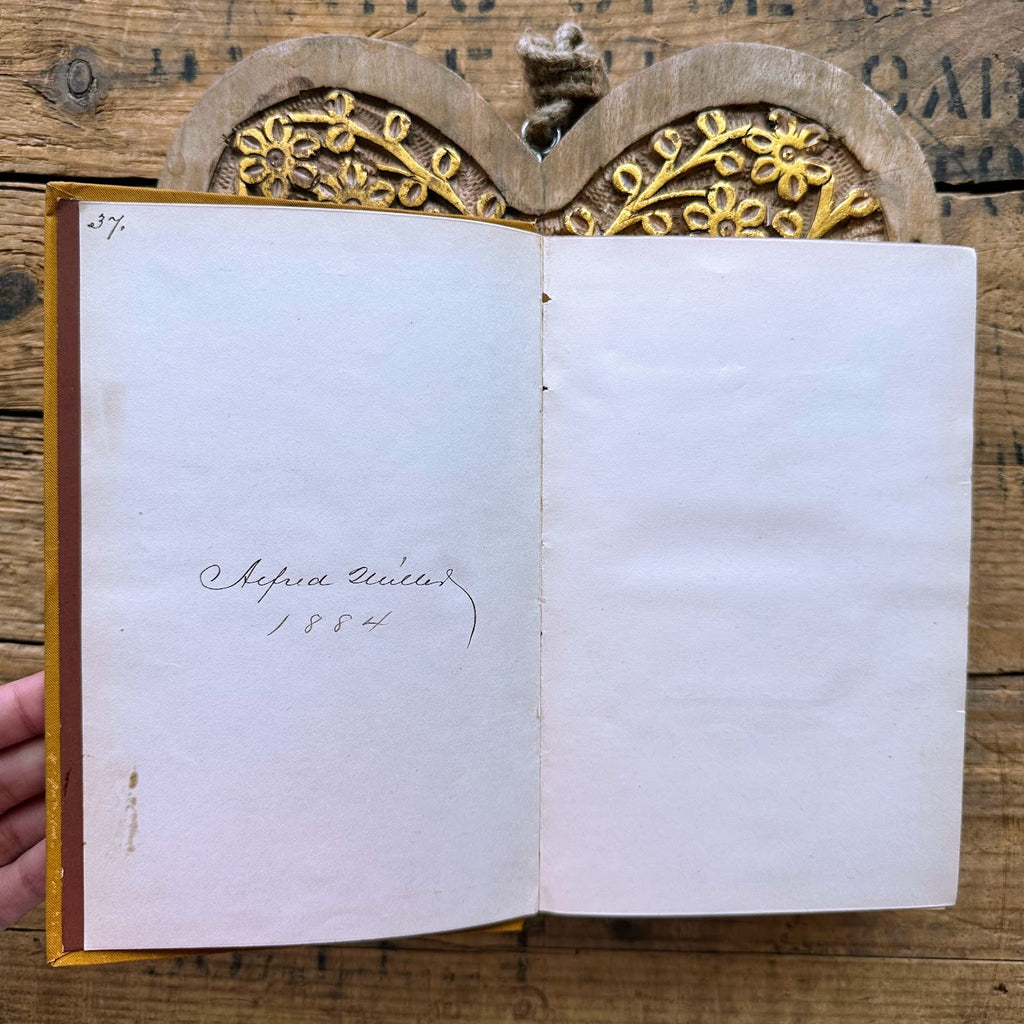 37.
Alfred Miller
1884